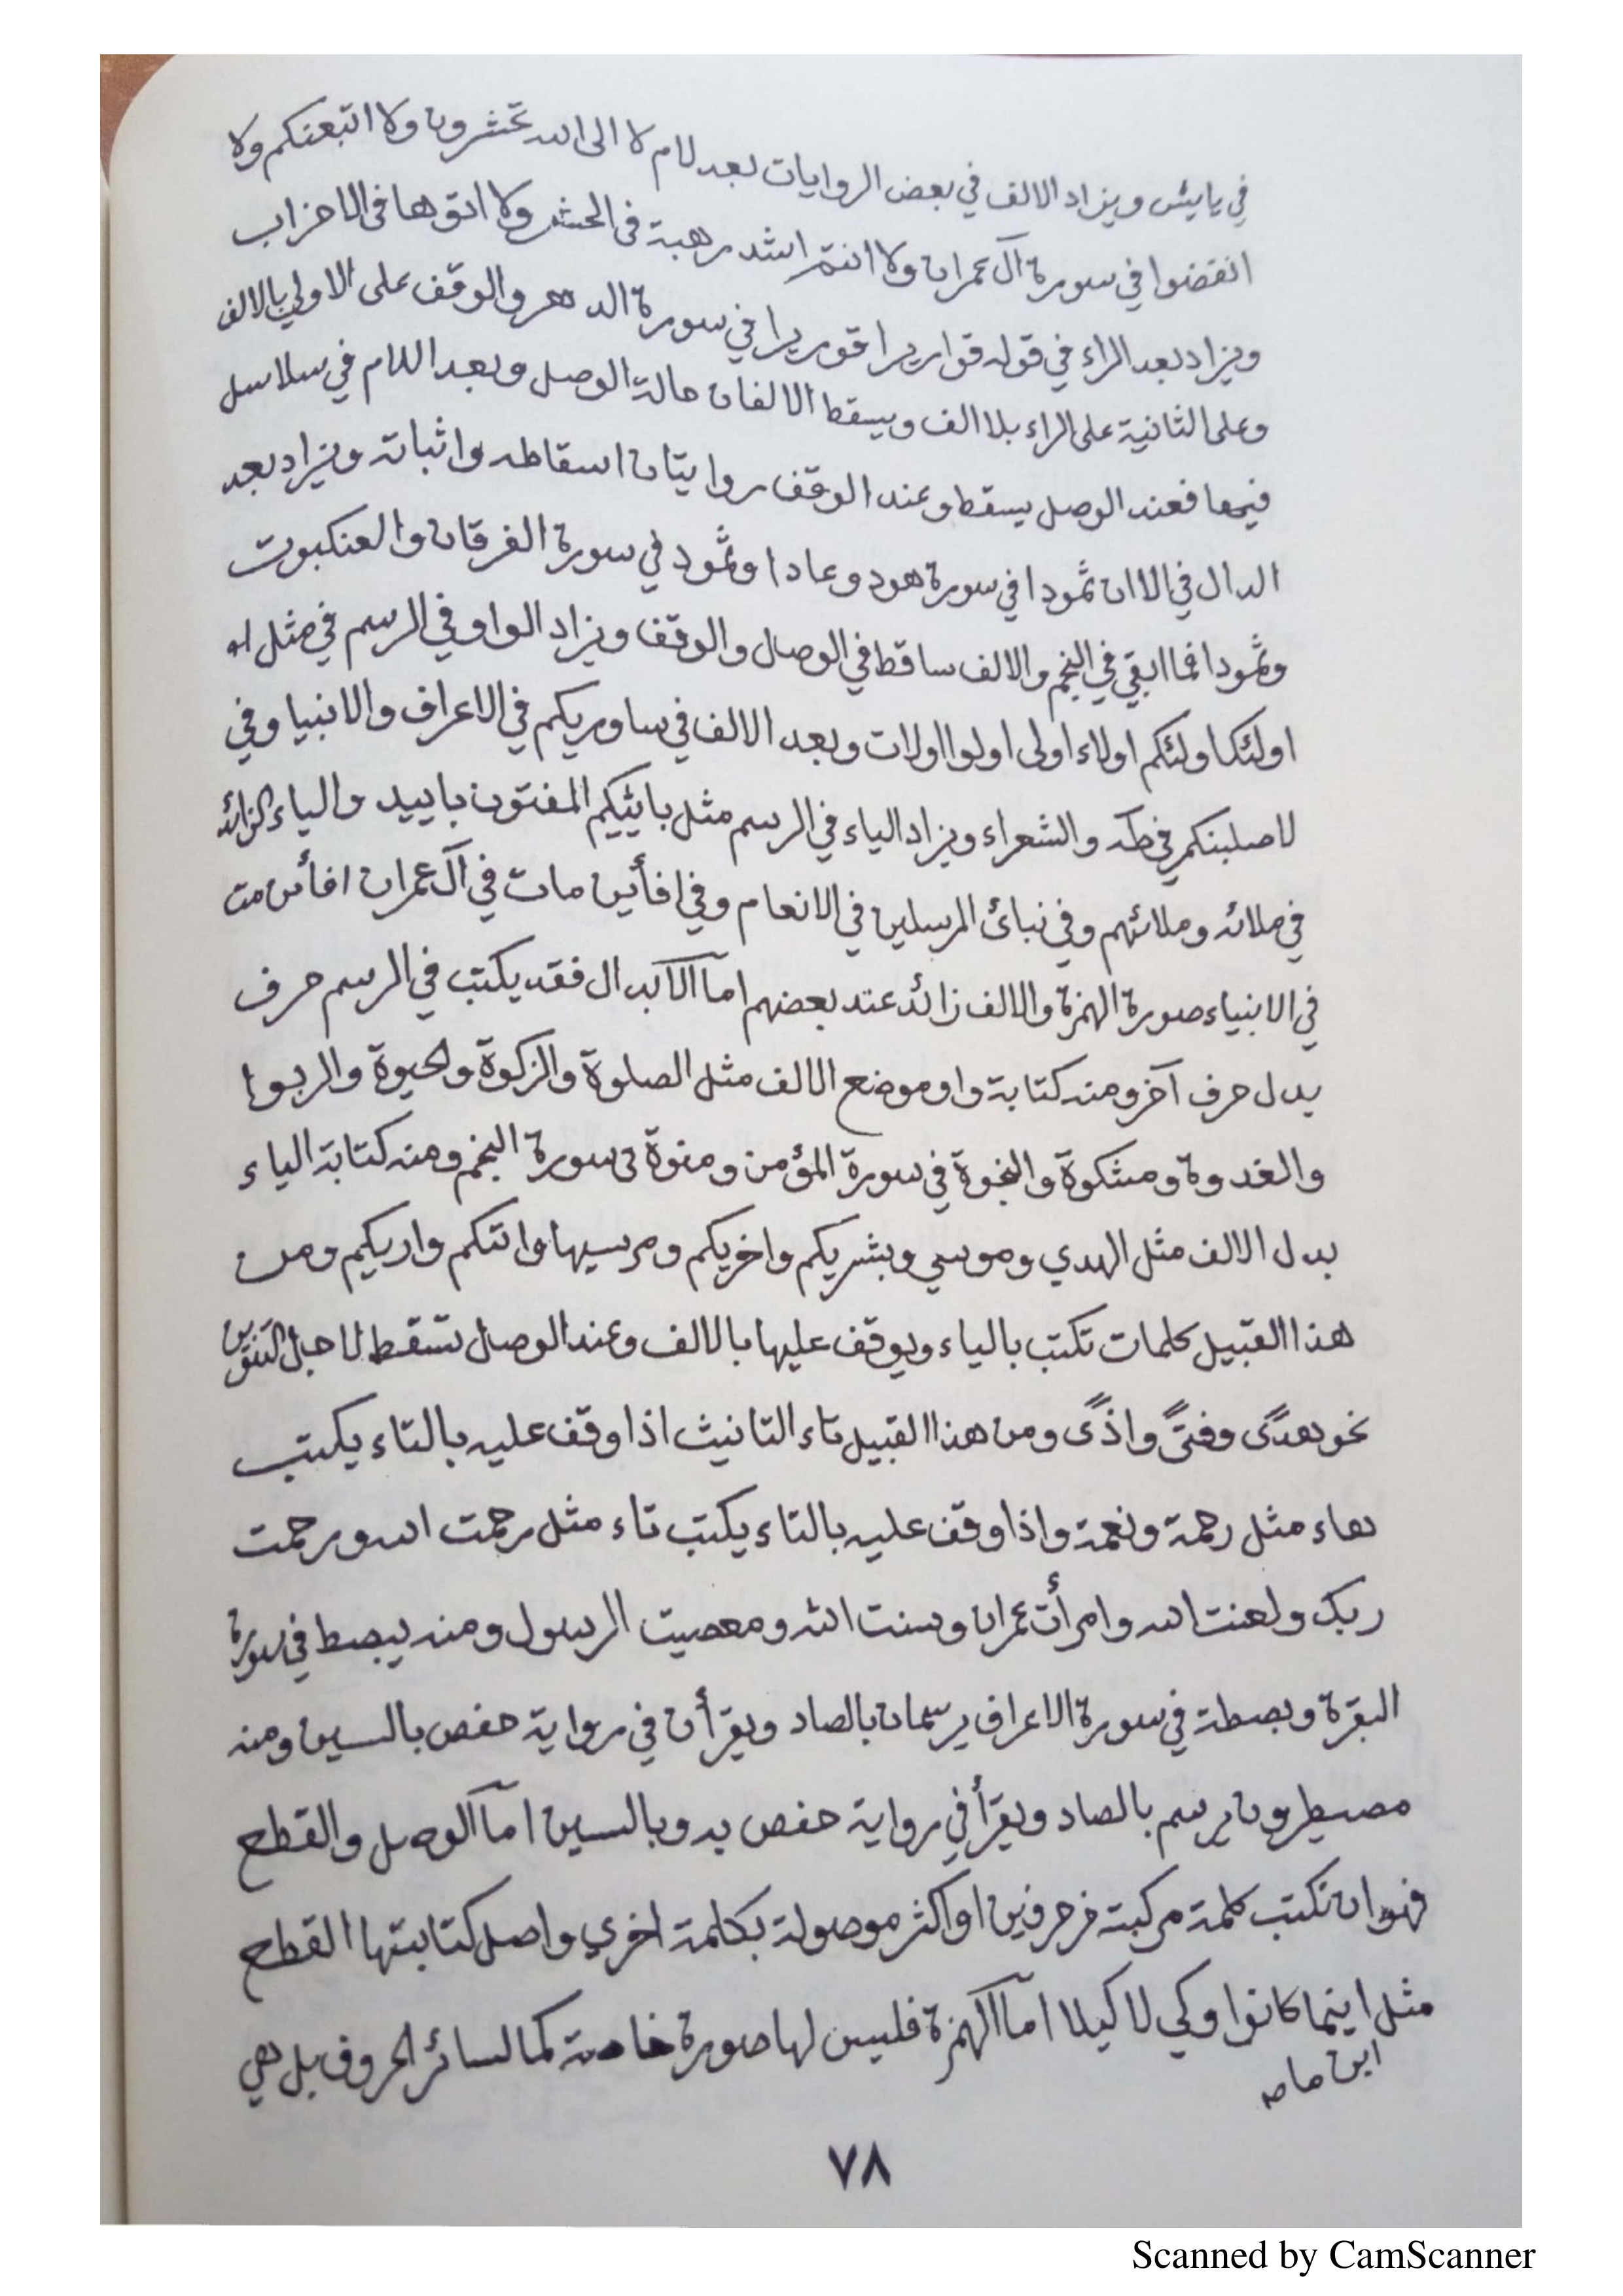 في يايئس ويزاد الالف في بعض الروايات بعد لام لا الى الله تحشرون ولا اتبعنكم ولا
انفضوا في سورة آل عمران ولا انتم اشد رهبة في الحشر ولا اتوها في الاحزاب
ويزاد بعد الراء في قوله قواريرا قوريرا في سورة الدهر والوقف على الاولي بالالف
وعلى الثانية على الراء بلا الف ويسقط الالفان حالة الوصل وبعد اللام في سلاسل
فيهما فعند الوصل يسقط وعند الوقف روايتان اسقاطه واثباته ويزاد بعد
الدال في الا ان ثمودا في سورة هود وعادا وثمود في سورة الفرقان والعنكبوت
وثمودا فما ابقي في النجم والالف ساقط في الوصل والوقف ويزاد الواو في الرسم في مثل
اولئك اولئكم اولاء اولى اولوا اولات وبعد الالف في ساوريكم في الاعراف والانبيا وفي
لاصلبنكم في طه والشعراء ويزاد الياء في الرسم مثل باييكم المفتون باييد والياء الزائد
في ملائه وملائهم وفي نبائ المرسلين في الانعام وفي افأين مات في آل عمران افأئن مت
في الانبياء صورة الهمزة والالف زائد عند بعضهم اما الابدال فقد يكتب في الرسم حرف
بدل حرف آخر ومنه كتابة واو موضع الالف مثل الصلوة والزكوة والحيوة والربوا
والغدوة ومشكوة والنجوة في سورة المؤمن ومنوة في سورة النجم ومنه كتابة الياء
بدل الالف مثل الهدي وموسي وبشريكم واخريكم ومرسيها واتتكم واريكم ومن
هذا القبيل كلمات تكتب بالياء ويوقف عليها بالالف وعند الوصل تسقط لاجل التنوين
نحو هدًى وفتًى واذًى ومن هذا القبيل تاء التانيث اذا وقف عليه بالتاء يكتب
هاء مثل رحمة ونعمة واذا وقف عليه بالتاء يكتب تاء مثل رحمت الله ورحمت
ربك ولعنت الله وامرأت عمران وسنت الله ومعصيت الرسول ومنه يبصط في سورة
البقرة وبصطة في سورة الاعراف يرسمان بالصاد ويقرأن في رواية حفص بالسين ومنه
مصيطرون يرسم بالصاد ويقرأ في رواية حفص به وبالسين اما الوصل والقطع
فهو ان تكتب كلمة مركبته من حرفين او اكثر موصولة بكلمة اخري واصل كتابتها القطع
مثل اينما كانوا وكي لا كيلا اما الهمزة فليس لها صورة خاصة كما لسائر الحروف بل هي
اين ما
٧٨
Scanned by CamScanner